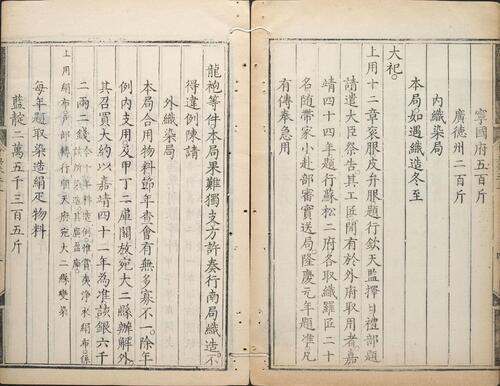 寧國府五百斤
廣德州二百斤
內織染局
本局如遇織造冬至
大祀。
上用十二章袞服皮弁服題行欽天監擇日禮部題
請遣大臣祭告。其工匠開有於外府取用者。嘉
靖四十四年題行蘇松二府各取織羅匠二十
名隨帶家小赴部審實送局隆慶元年題准。凡
有傳奉急用
龍袍等件本局果難獨支方許奏行南局織造。不
得違例陳請
外織染局
本局合用物料節年查會有無多寡不一。除年
例內支用。及甲丁二庫關放宛大二縣辦解外。
其召買大約以嘉靖四十二年為准該銀六千
二兩二錢
上用絹布戶部轉行順天府宛大二縣變染
每年題取染造絹疋物料
藍靛二萬五千三百五斤